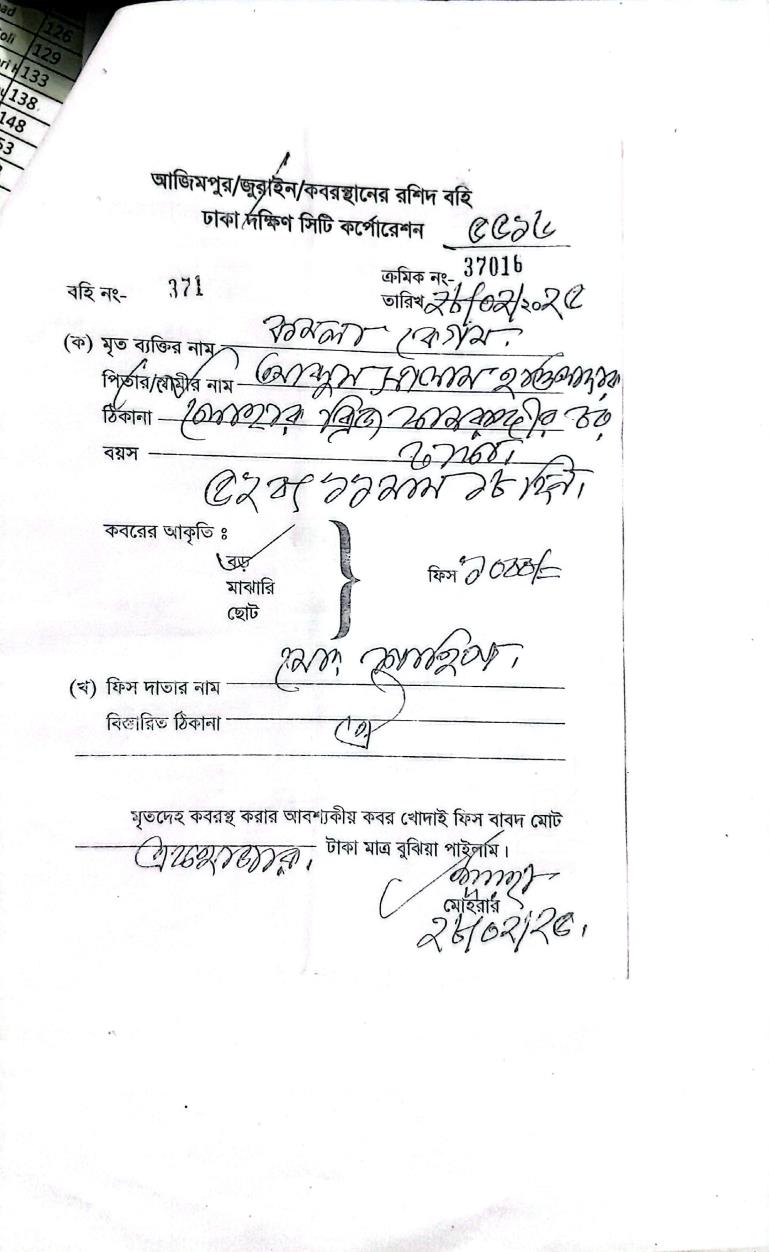 ad
126
oli
129
133
138
148
53
আজিমপুর/জুরাইন/কবরস্থানের রশিদ বহি
ঢাকা দক্ষিণ সিটি কর্পোরেশন
৫৫১৬
বহি নং- 371
ক্রমিক নং- 37016
তারিখ ২৮/০২/২০২৫
(ক) মৃত ব্যক্তির নাম কমলা বেগম।
পিতার/স্বামীর নাম আব্দুস সালাম হাওলাদার
ঠিকানা
বয়স
৫২ বৎ ১১ মাস ১৮ দিন।
কবরের আকৃতি ঃ
বড়
মাঝারি
ছোট
ফিস ১০০০/=
(খ) ফিস দাতার নাম মোঃ
বিস্তারিত ঠিকানা ঐ
মৃতদেহ কবরস্থ করার আবশ্যকীয় কবর খোদাই ফিস বাবদ মোট
একহাজার। টাকা মাত্র বুঝিয়া পাইলাম।
মোহরার
২৮/০২/২৫।